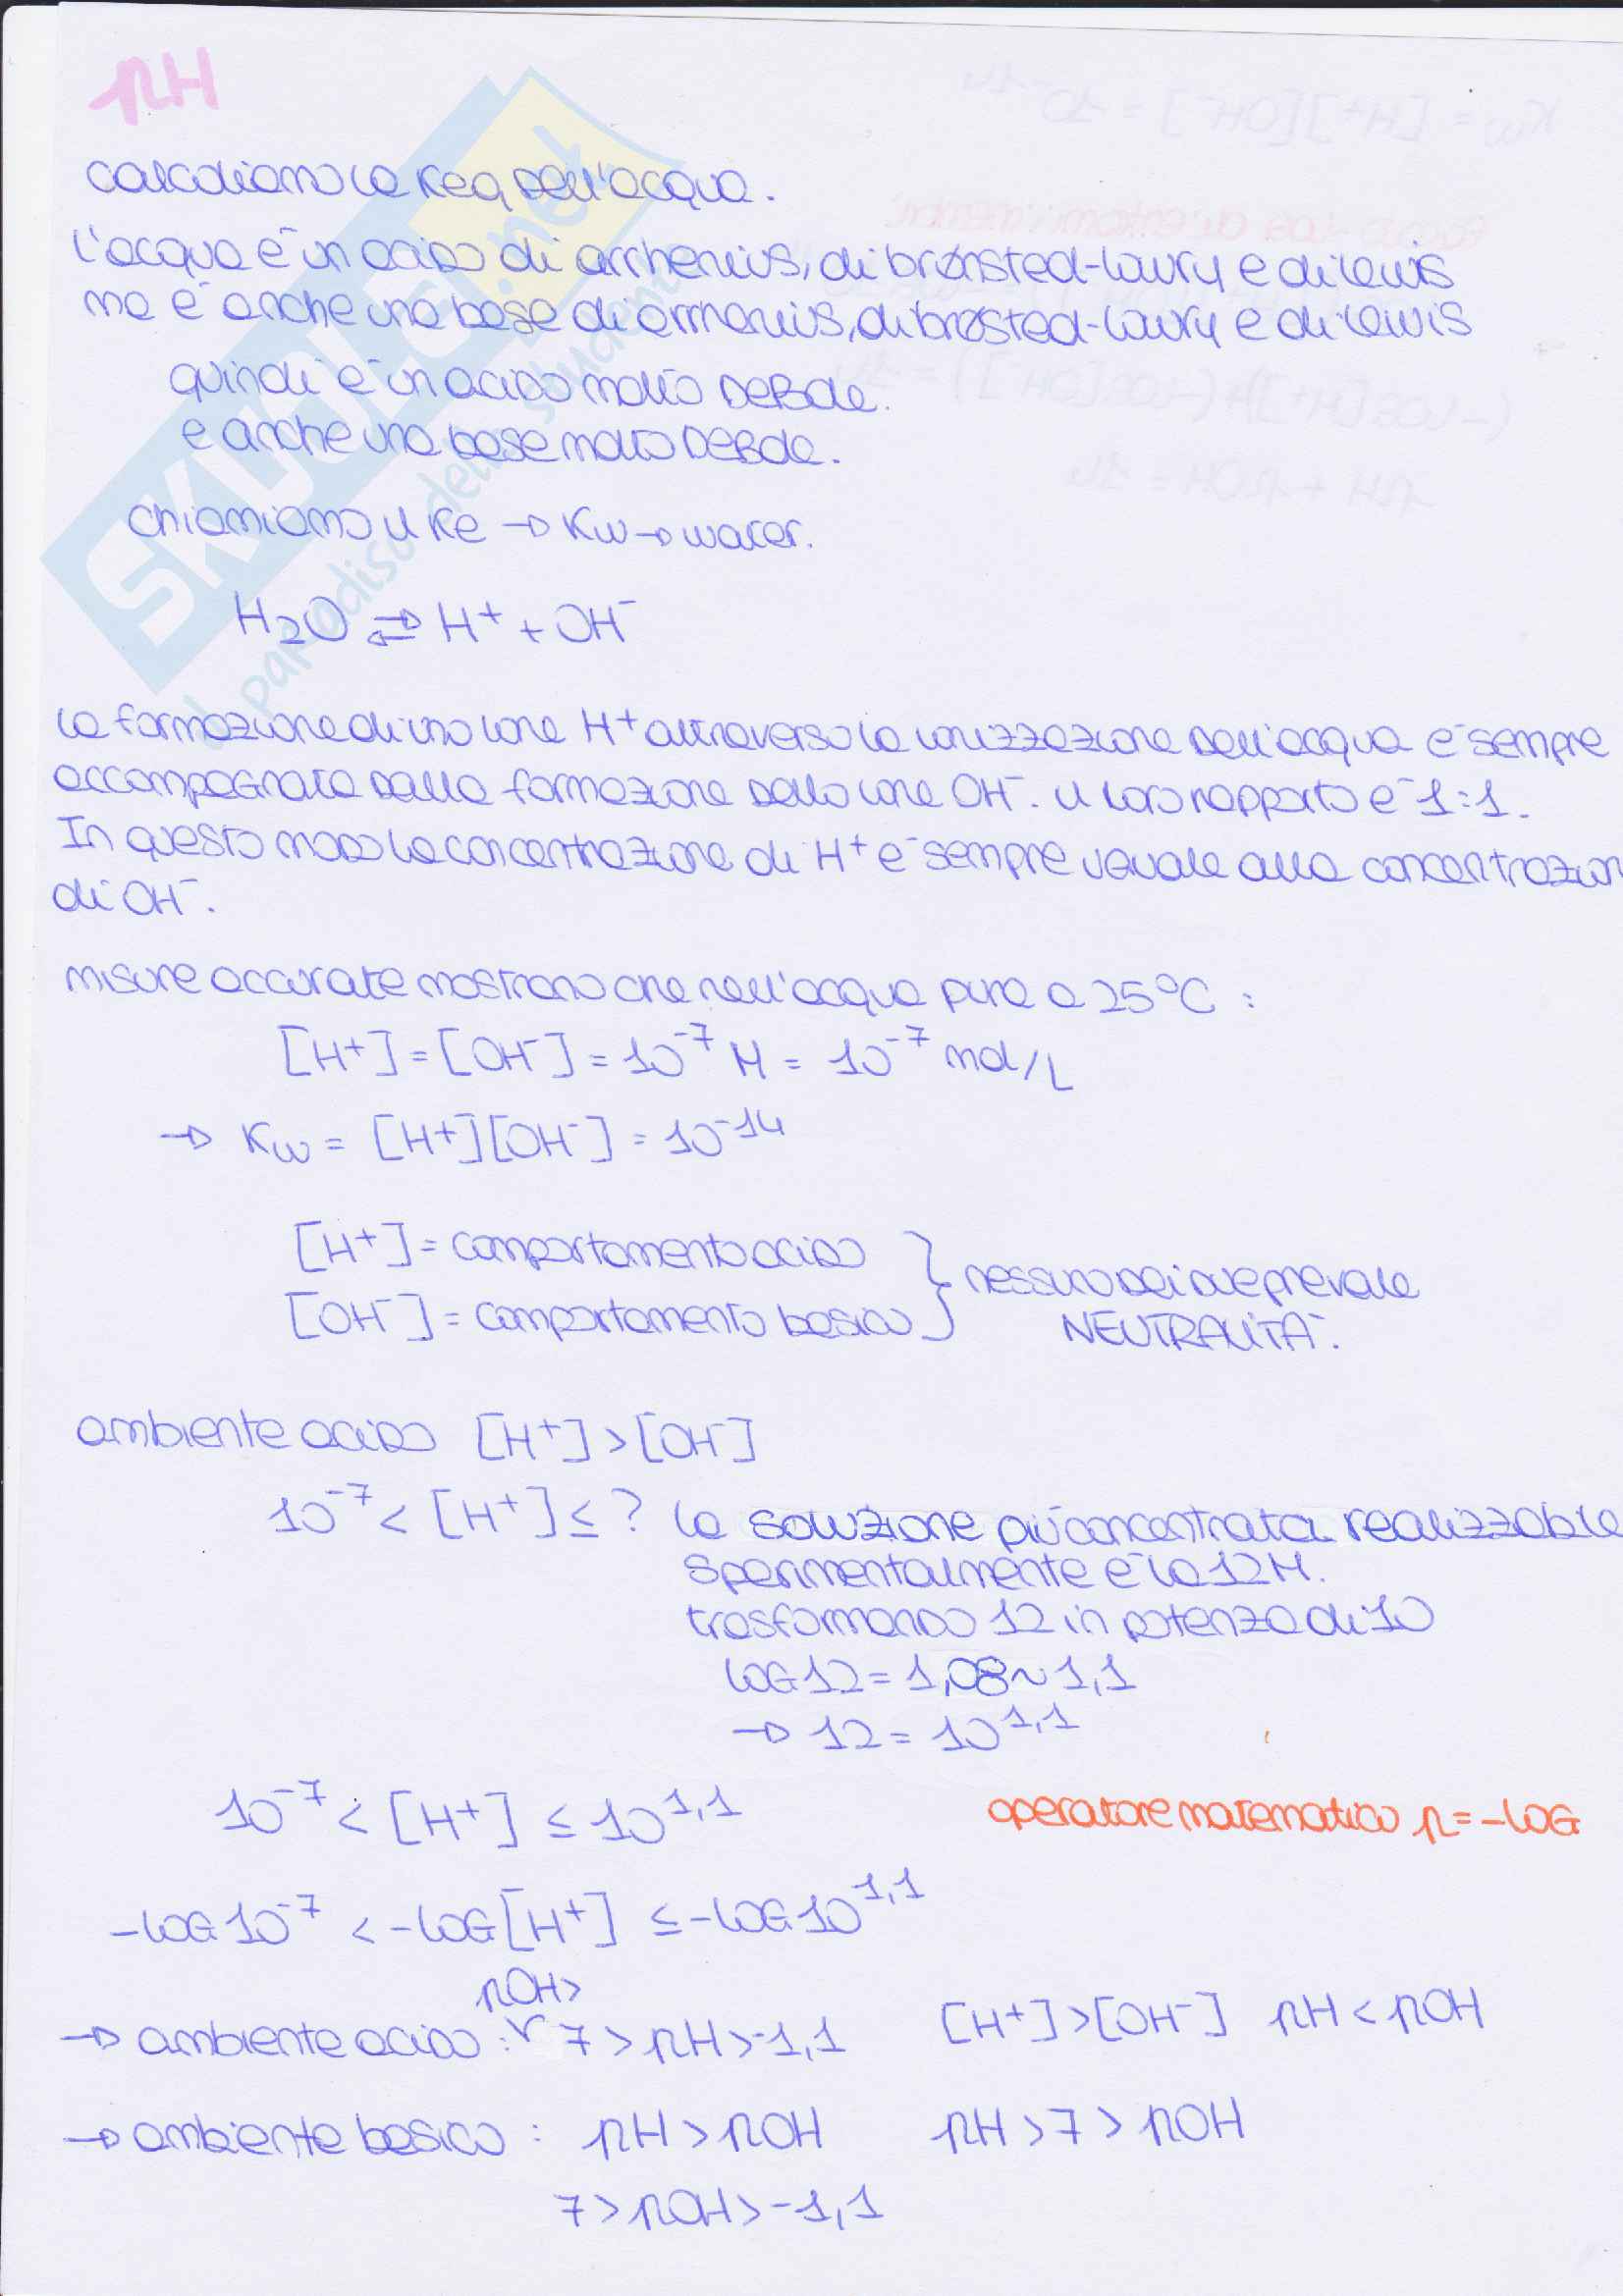 pH
calcoliamo la Keq dell'acqua.
l'acqua è un acido di arrhenius, di brønsted-lowry e di lewis
ma è anche una base di arrhenius, di brøsted-lowry e di lewis
quindi è un acido molto DEBOLE.
e anche una base molto DEBOLE.
chiamiamo il Ke → Kw → water.
H₂O ⇄ H⁺ + OH⁻
la formazione di uno ione H⁺ attraverso la ionizzazione dell'acqua è sempre
accompagnata dalla formazione dello ione OH⁻. il loro rapporto è 1:1.
In questo modo la concentrazione di H⁺ è sempre uguale alla concentrazion
di OH⁻.
misure accurate mostrano che nell'acqua pura a 25°C :
[H⁺] = [OH⁻] = 10⁻⁷ M = 10⁻⁷ mol/L
→ Kw = [H⁺][OH⁻] = 10⁻¹⁴
[H⁺] = comportamento acido
[OH⁻] = comportamento basico
} nessuno dei due prevale
NEUTRALITÀ.
ambiente acido [H⁺] > [OH⁻]
10⁻⁷ < [H⁺] ≤ ? la soluzione più concentrata realizzabile
sperimentalmente è la 12 M.
trasformando 12 in potenza di 10
LOG 12 = 1,08 ~ 1,1
→ 12 = 10^1,1
10⁻⁷ < [H⁺] ≤ 10^1,1
operatore matematico p = -LOG
-LOG 10⁻⁷ < -LOG [H⁺] ≤ -LOG 10^1,1
pOH>
→ ambiente acido : 7 > pH > -1,1 [H⁺] > [OH⁻] pH < pOH
→ ambiente basico : pH > pOH pH > 7 > pOH
7 > pOH > -1,1
SKUOLA.net
il paradiso dello studente